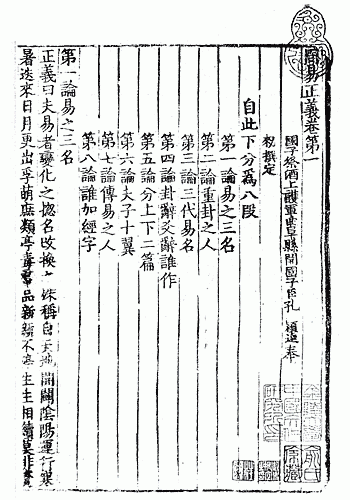 周易正義卷第一
國子祭酒上護軍曲阜縣開國子臣孔 穎達奉
敕撰定
自此下分爲八段
第一論易之三名
第二論重卦之人
第三論三代易名
第四論卦辭爻辭誰作
第五論分上下二篇
第六論夫子十翼
第七論傳易之人
第八論誰加經字
第一論易之三名
正義曰夫易者變化之揔名改換之殊稱自天地開闢陰陽運行寒
暑迭來日月更出孚萌庶類亭毒羣品新新不停生生相續莫非資